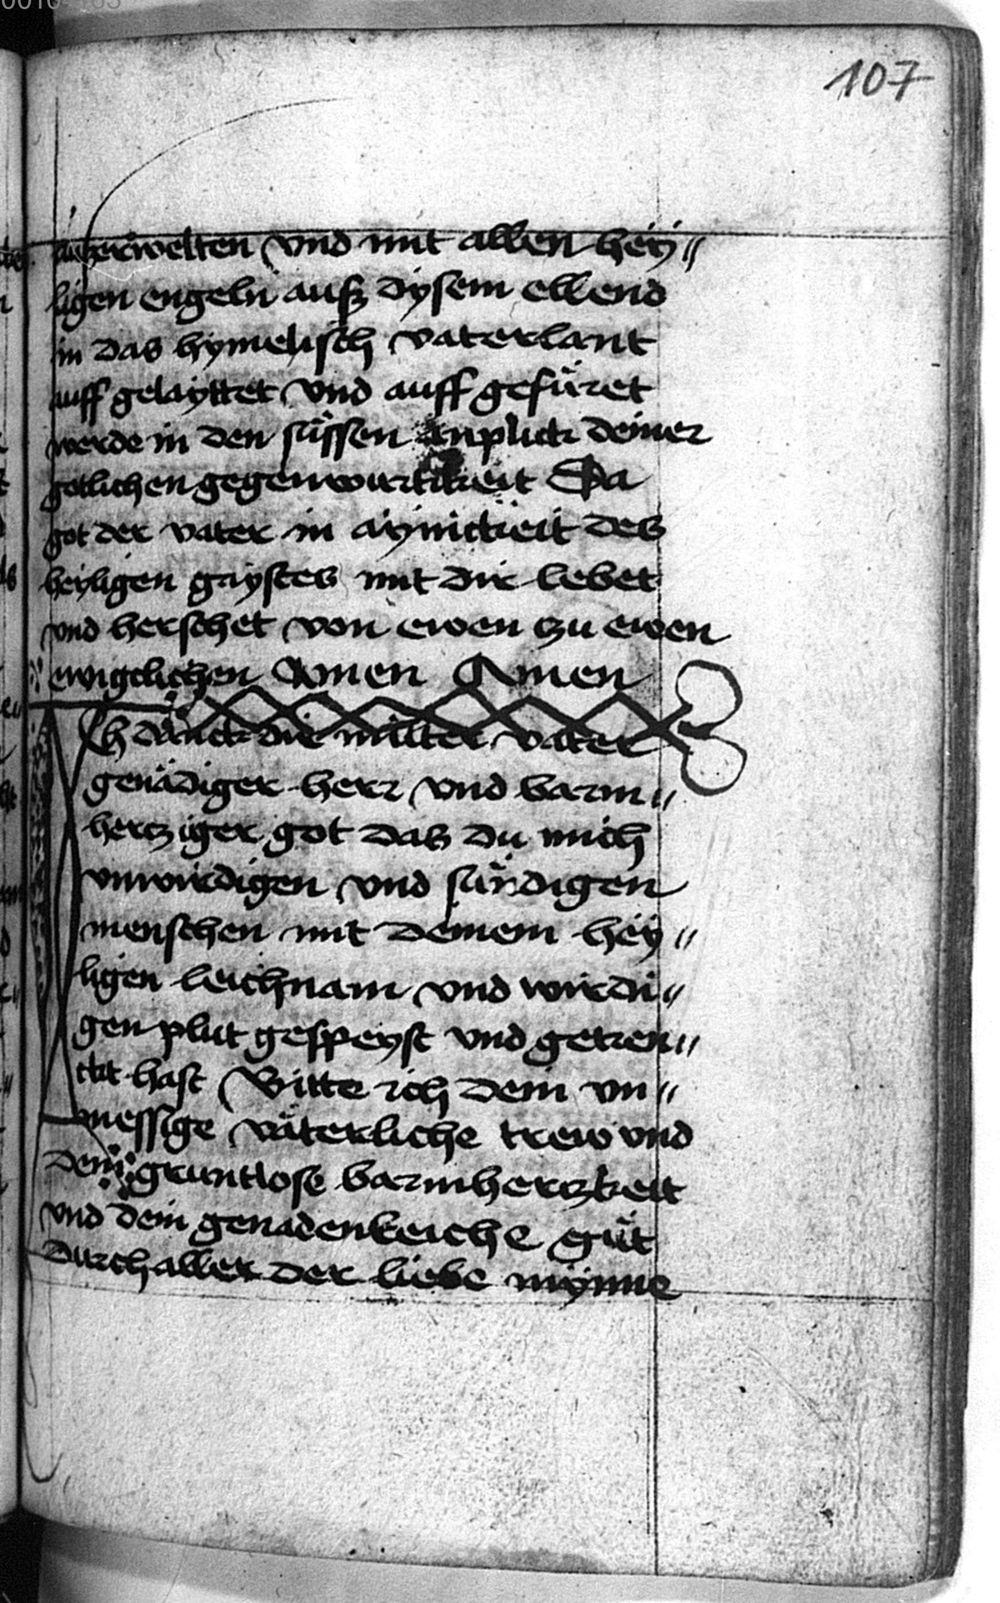 107
außerwelten vnd mit allen hey〃
ligen engeln auß dysem ellend
in das hymelisch vaterlant
auff gelayttet vnd auff gefüret
werde in den süssen anplick deiner
gotlichen gegenwurtikeit Da
got der vater in aynickeit des
heyligen gaystes mit dir lebet
vnd herschet von ewen czu ewen
ewigclichen Amen Amen
Ich danck dir milter vater
genädiger herr vnd barm〃
hercziger got das du mich
vnwirdigen vnd sündigen
menschen mit deinem hey〃
ligen leichnam vnd wirdi〃
gen plut gespeyst vnd getren〃
ckt hast Bitte ich dein vn〃
messige väterliche trew vnd
dein gruntlose barmherczkeit
vnd dein genadenreiche güt
durch aller der liebe mynne